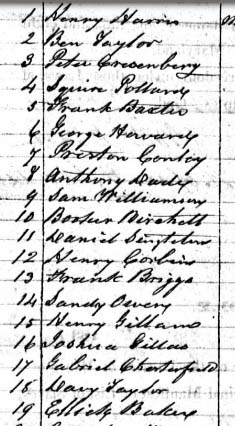 1 Henry Harris
2 Ben Taylor
3 Peter Creenberg
4 Squire Pollard
5 Frank Baxter
6 George Howard
7 Preston Conley
8 Anthony Dady
9 Sam Williamson
10 Booker Birchett
11 Daniel Singleton
12 Henry Corbin
13 Frank Briggs
14 Sandy Owens
15 Henry Gillam
16 Joshua Gillam
17 Gabriel Chesterfield
18 Davy Taylor
19 Ellick Baker